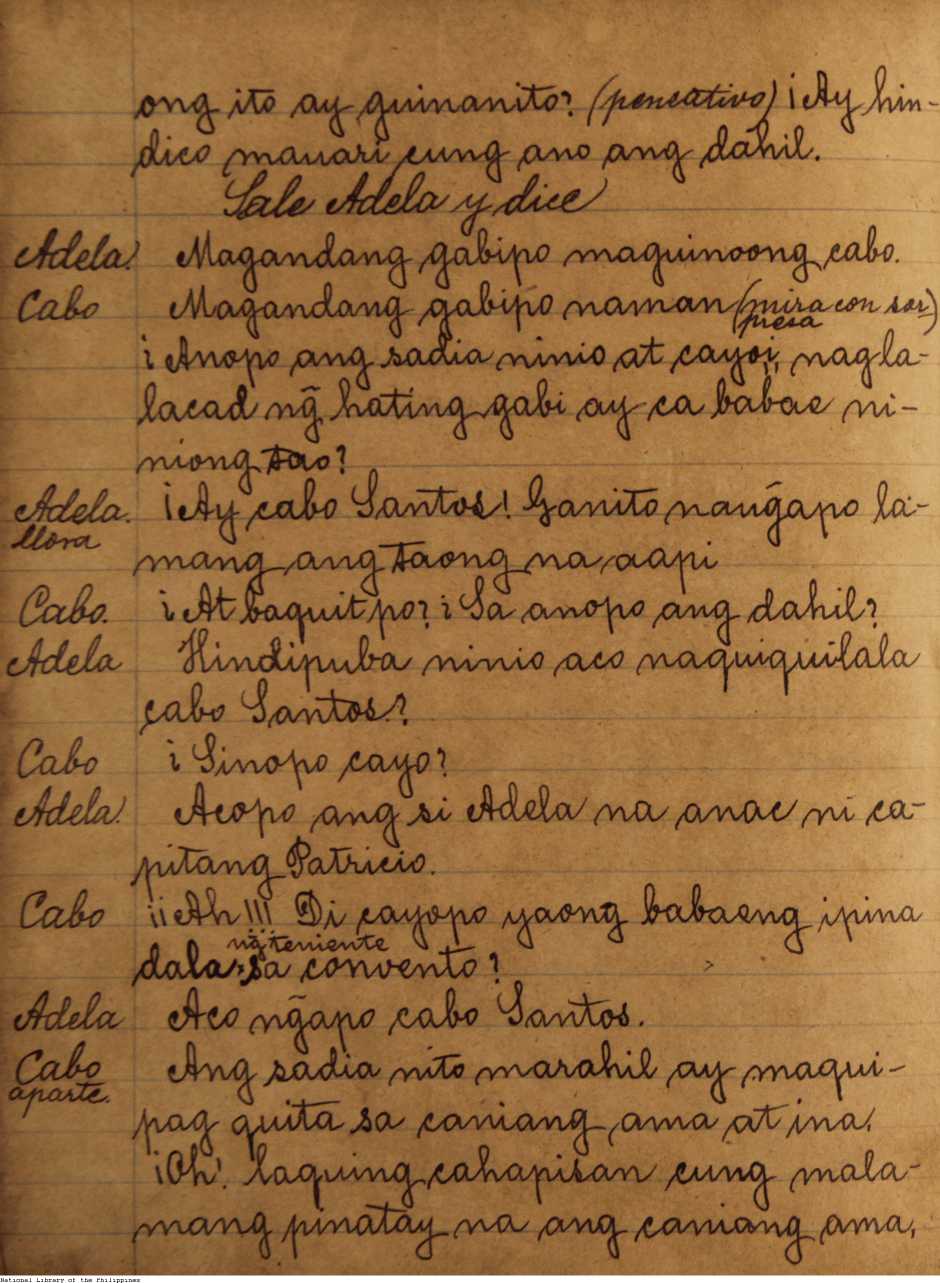 ong ito ay guinanito? (pencativo) ¡Ay hin-
dico mauari cung ano ang dahil.
Sale Adela y dice
Adela. Magandang gabipo maguinoong cabo.
Cabo Magandang gabipo naman (mira con sor
presa)
¡Anopo ang sadia ninio at cayoi, nagla-
lacad ng̃ hating gabi ay ca babae ni-
niong tao?
Adela. ¡Ay cabo Santos! Ganito naug̃apo la-
llora mang ang taong na aapi
Cabo. ¡At baquit po? ¡Sa anopo ang dahil?
Adela Hindipuba ninio aco naquiquilala
cabo Santos?
Cabo ¡Sinopo cayo?
Adela. Acopo ang si Adela na anac ni ca-
pitang Patricio.
Cabo ¡¡Ah!!! Di cayopo yaong babaeng ipina
ng̃ teniente
dala sa convento?
Adela Aco ng̃apo cabo Santos.
Cabo Ang sadia nito marahil ay maqui-
aparte. pag quita sa caniang ama at ina.
¡Oh! laquing cahapisan cung mala-
mang pinatay na ang caniang ama,
National Library of the Philippines